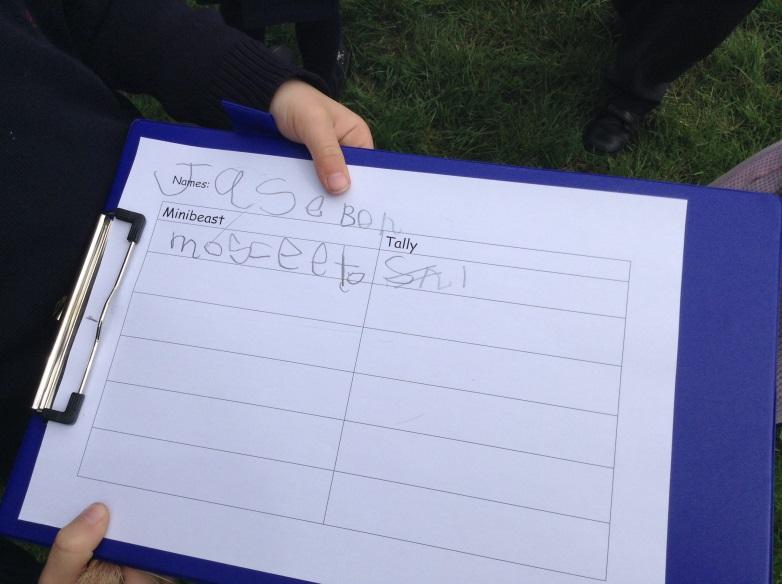 Names: Jase Ben
Minibeast Tally
mosceeto 1